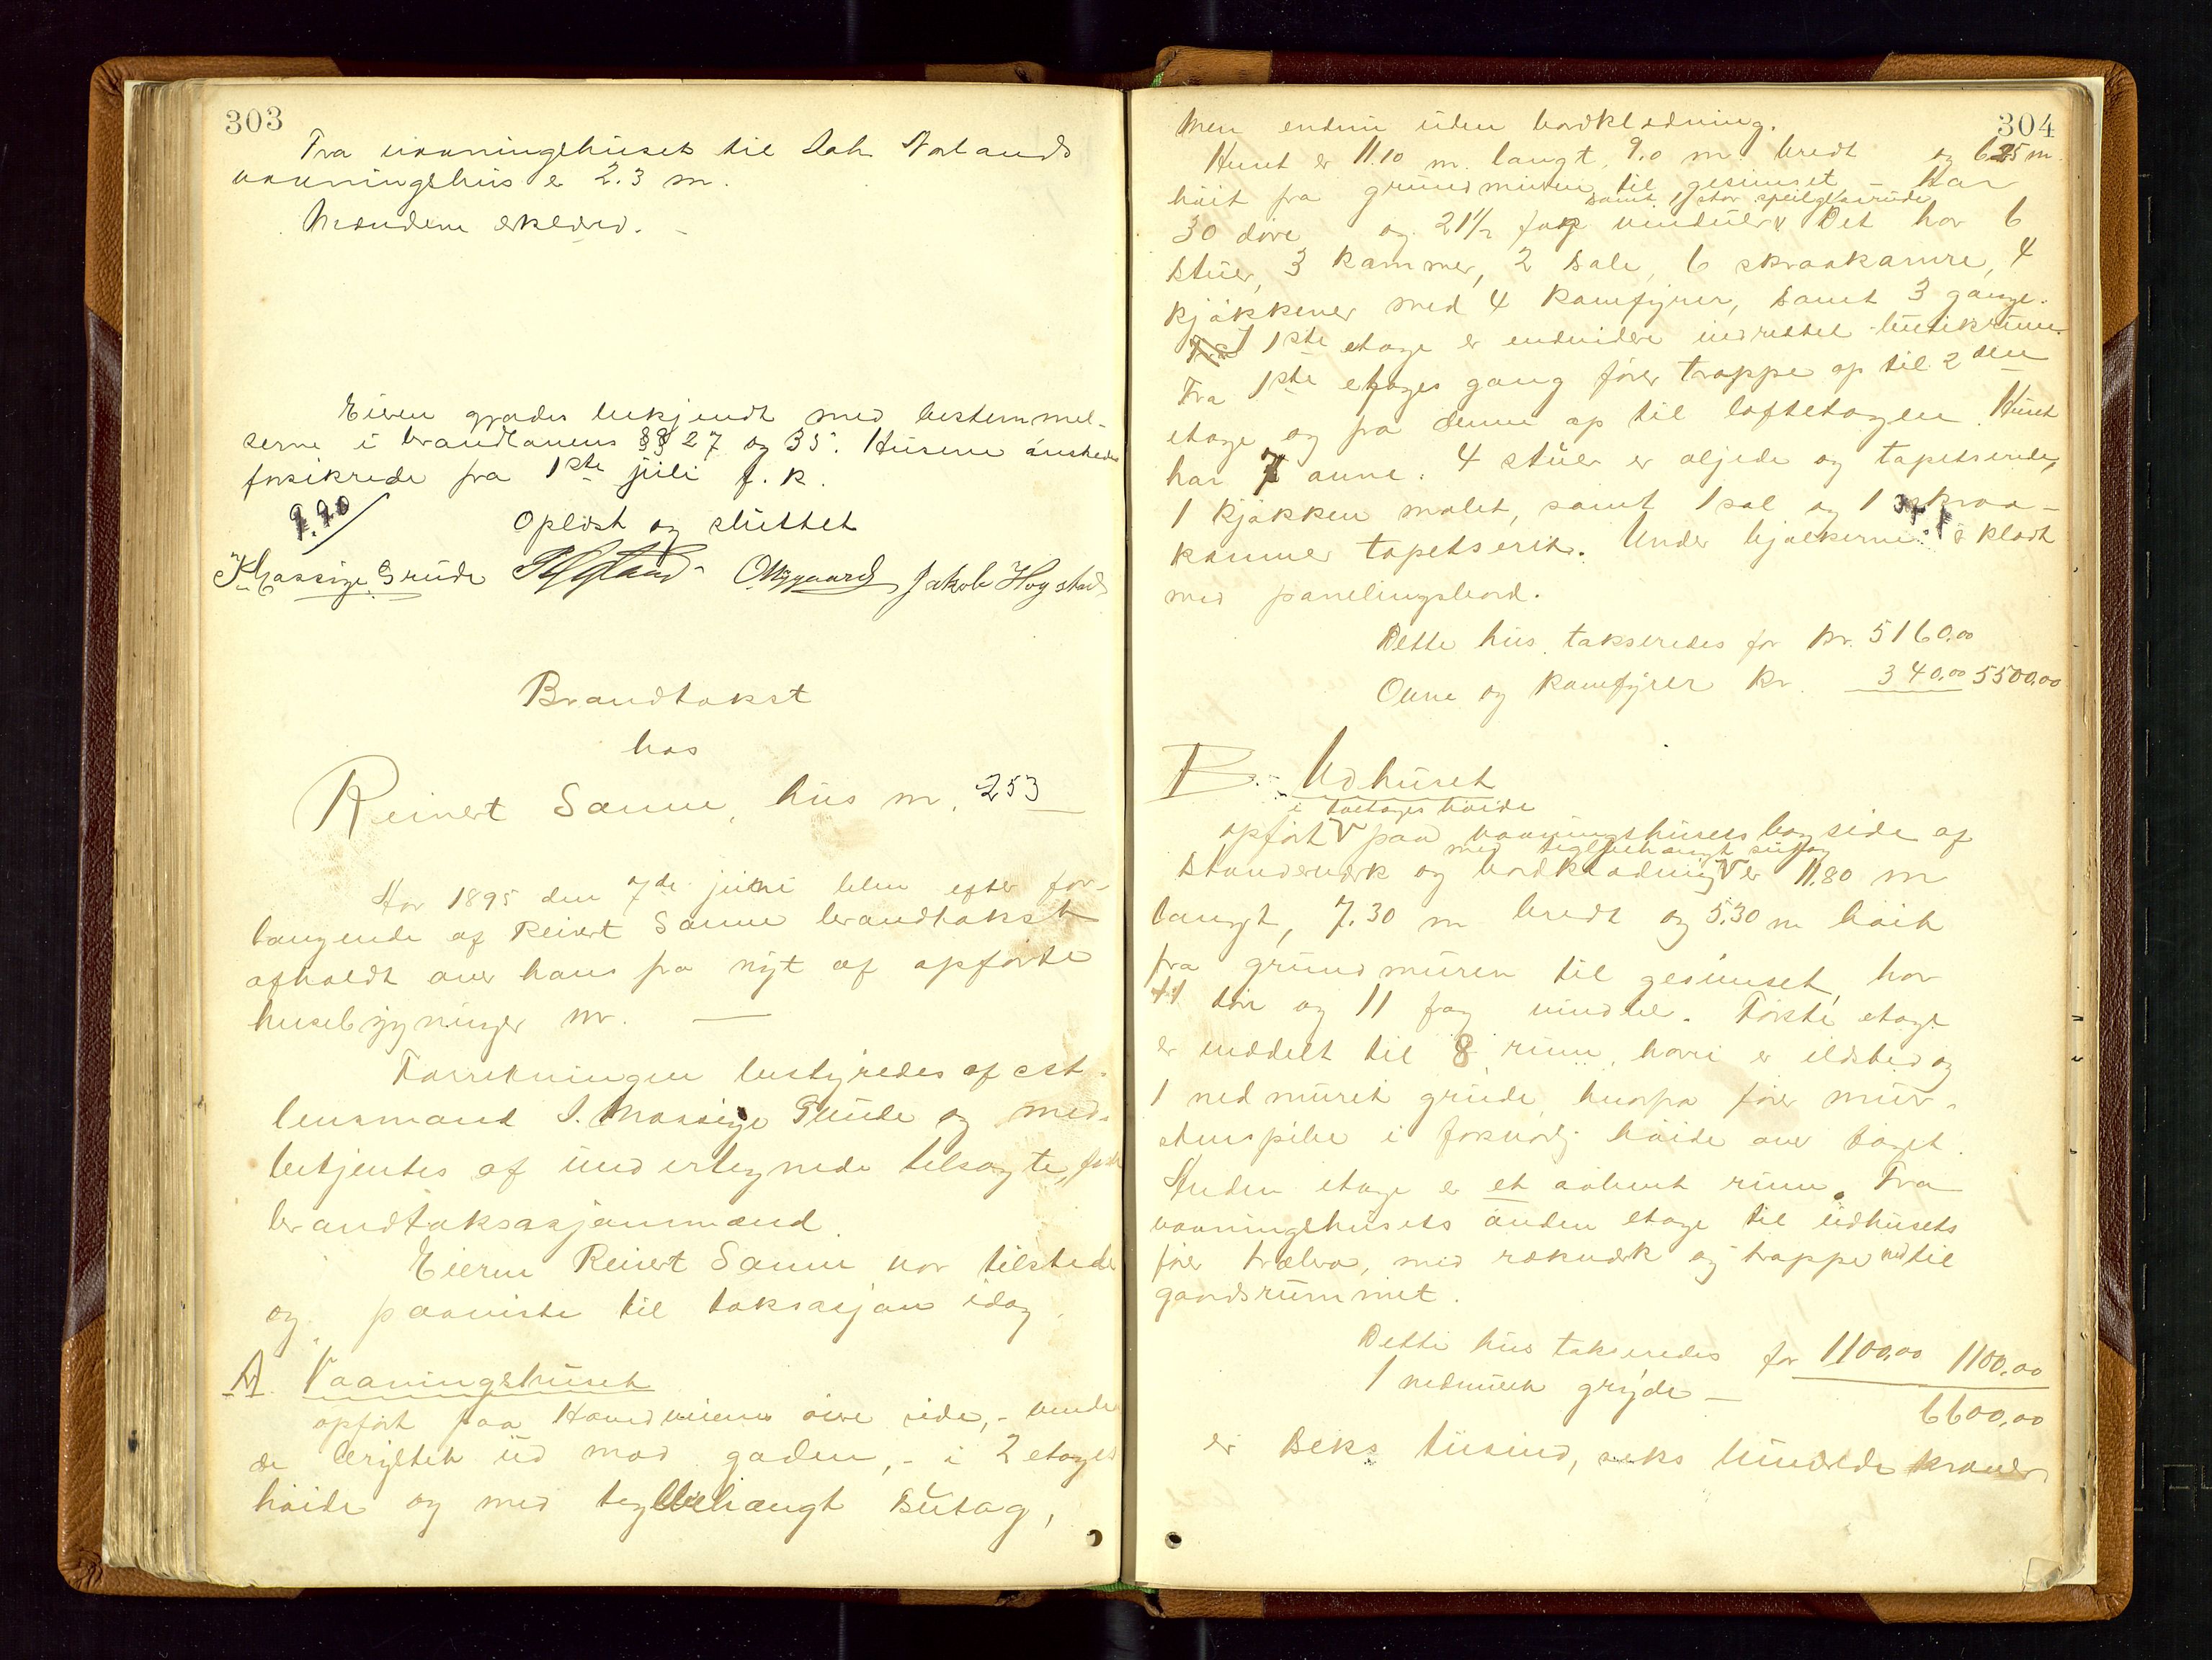 303
Fra vaaningshuset til Dah Vorlands
vaaningshus er 2.3 m.
Mændene erklærd.
Eieren gjordes bekjendt med bestemmel-
serne i brandlovens §§ 27 og 35. Husene ønskedes
forsikrede fra 1ste juli f. k.
9.90
Oplæst og sluttet
Massige Grude O. Nygaard Jakob Hogstad
Brandtakst
hos
Reinert Sanne, hus nr. 253
Aar 1895 den 7de juni blev efter for-
langende af Reinert Sanne brandtakst
afholdt over hans fra nyt af opførte
husebygninger nr. —
Forretningen bestyredes af cst.
lensmand S. Massige Grude og med-
betjentes af undertegnede tilsagte, faste
brandtaksasjonmænd.
Eieren Reinert Sanne var tilstede
og paaviste til taksasjon idag.
A. Vaaningshuset
opført paa Hovedveiens øvre side, - vende
de bryltet ud mod gaden, - i 2 etages
høide og med teglbehængt sutag,
304
Men endnu uden bordklædning.
Huset er 11.10 m. langt, 9.0 m. bredt og 6.25 m.
høit fra grundmuren til gesimset – Har
samt 1 stor speilglasrude
30 døre og 21 1/2 fag vinduer. Det har 6
stuer, 3 kammer, 2 sale, 6 skraakamre, 4
kjøkkener med 4 komfyrer, samt 3 gange.
I 1ste etage er endvidere indrettet butikrum.
Fra 1ste etages gang fører trappe op til 2den
etage og fra denne op til loftetagen. Huset
har 7 ovne. 4 stuer er oljede og tapetserede,
1 kjøkken malet, samt 1 sal og 1 skraa-
kammer tapetserit. Under bjælkerne er klædt
med panelingsbord.
Dette hus takseredes for kr. 5160.00
Ovne og komfyrer kr. 340.00 5500.00
B. Udhuset
i toetages høide
opført paa vaaningshusets bagside af
med teglbehængt sutag
standerværk og bordklædning er 11.80 m
langt, 7.30 m bredt og 5.30 m høit
fra grundmuren til gesimset, har
11 døre og 11 fag vindue. Første etage
er inddelt til 8 rum, hvori er ildsted og
1 nedmuret grude, hvorfra fører mur-
stenspibe i forsvarlig høide over taget.
Anden etage er et aabent rum. Fra
vaaningshusets anden etage til udhusets
fører træbro, med rækværk og trappe ned til
gaardsrummet.
Dette hus takseredes for 1100.00 1100.00
1 nedmuret gryde —
6600.00
er Seks tusind, seks hundrede kroner